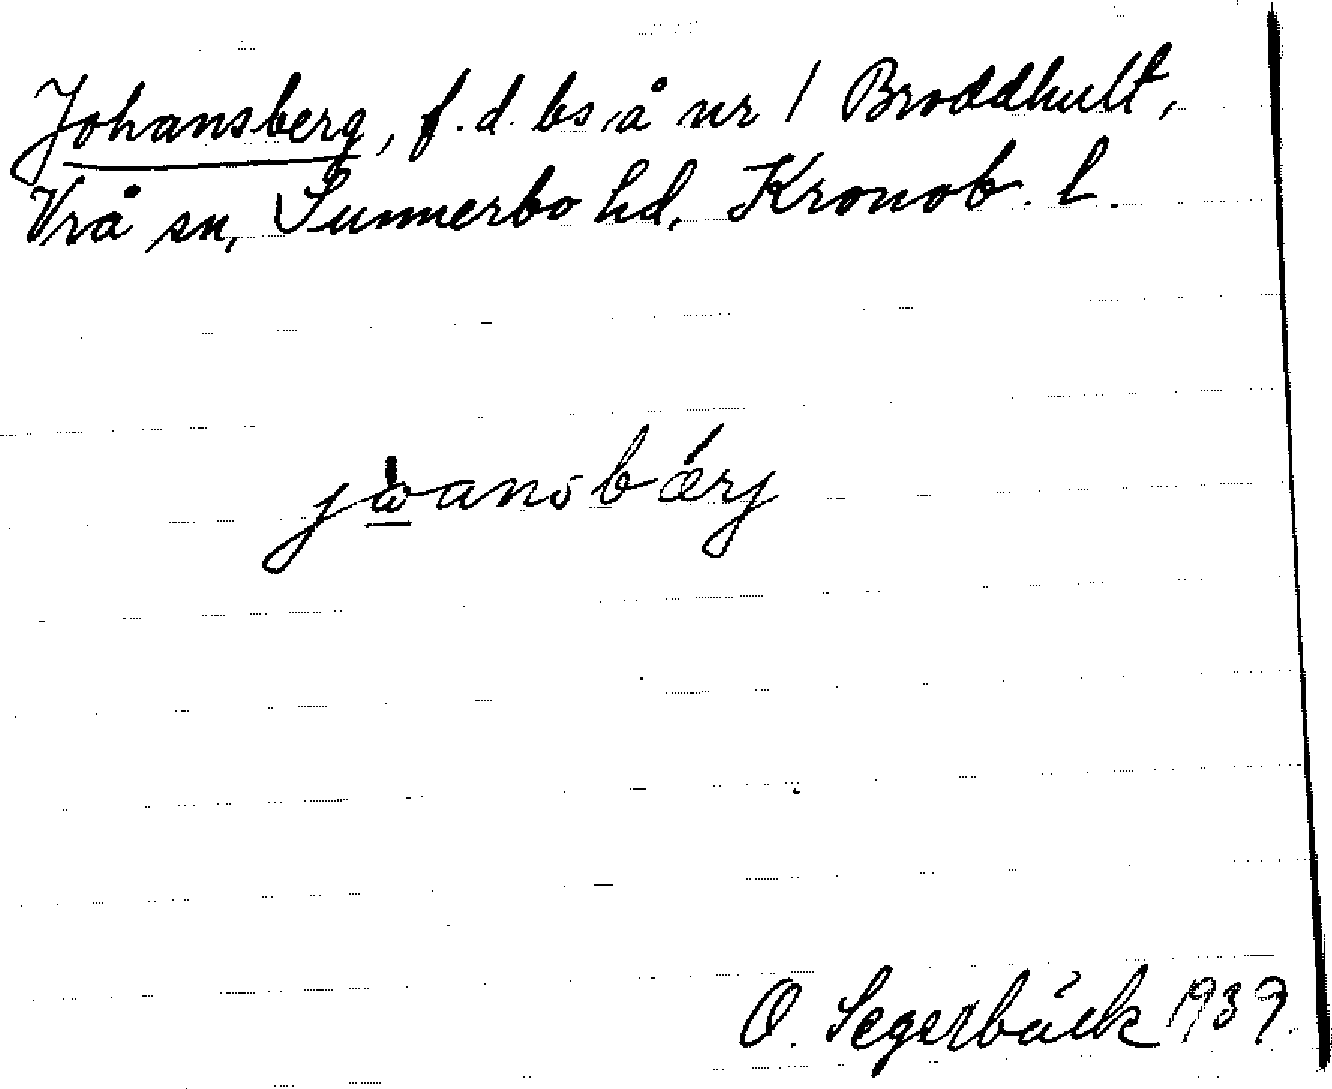 Johansberg, f.d. bs å nr 1 Broddhult,
Vrå sn, Sunnerbo hd, Kronob. l.
jòansbǽrj
O. Segerbäck 1939.